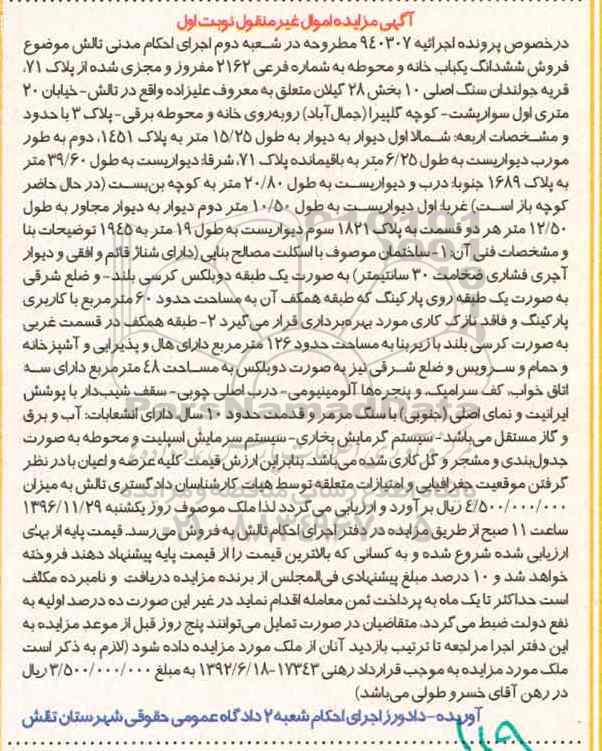 آگهی مزایده اموال غیر منقول نوبت اول
درخصوص پرونده اجرائیه ۹۴۰۳۰۷ مطروحه در شعبه دوم اجرای احکام مدنی تالش موضوع
فروش ششدانگ یکباب خانه و محوطه به شماره فرعی ۲۱۶۲ مفروز و مجزی شده از پلاک ۷۱،
قریه جولندان سنگ اصلی ۱۰ بخش ۲۸ گیلان متعلق به معروف علیزاده واقع در تالش- خیابان ۲۰
متری اول سوارپشت- کوچه گلپیرا (جمال‌آباد) روبه‌روی خانه و محوطه برقی- پلاک ۳ با حدود
و مشخصات اربعه: شمالا اول دیوار به دیوار به طول ۱۵/۲۵ متر به پلاک ۱۴۵۱، دوم به طور
مورب دیواریست به طول ۶/۲۵ متر به باقیمانده پلاک ۷۱، شرقا: دیواریست به طول ۳۹/۶۰ متر
به پلاک ۱۶۸۹ جنوبا: درب و دیواریست به طول ۲۰/۸۰ متر به کوچه بن‌بست (در حال حاضر
کوچه باز است) غربا: اول دیواریست به طول ۱۰/۵۰ متر دوم دیوار به دیوار مجاور به طول
۱۲/۵۰ متر هر دو قسمت به پلاک ۱۸۲۱ سوم دیواریست به طول ۱۹ متر به ۱۹۴۵ توضیحات بنا
و مشخصات فنی آن: ۱- ساختمان موصوف با اسکلت مصالح بنایی (دارای شناژ قائم و افقی و دیوار
آجری فشاری ضخامت ۳۰ سانتیمتر) به صورت یک طبقه دوبلکس کرسی بلند- و ضلع شرقی
به صورت یک طبقه روی پارکینگ که طبقه همکف آن به مساحت حدود ۶۰ مترمربع با کاربری
پارکینگ و فاقد نازک کاری مورد بهره‌برداری قرار می‌گیرد ۲- طبقه همکف در قسمت غربی
به صورت کرسی بلند با زیربنا به مساحت حدود ۱۲۶ مترمربع دارای هال و پذیرایی و آشپزخانه
و حمام و سرویس و ضلع شرقی نیز به صورت دوبلکس به مساحت ۴۸ مترمربع دارای سه
اتاق خواب، کف سرامیک، و پنجره‌ها آلومینیومی- درب اصلی چوبی- سقف شیب‌دار با پوشش
ایرانیت و نمای اصلی (جنوبی) با سنگ مرمر و قدمت حدود ۱۰ سال دارای انشعابات: آب و برق
و گاز مستقل می‌باشد- سیستم گرمایش بخاری- سیستم سرمایش اسپلیت و محوطه به صورت
جدول‌بندی و مشجر و گل کاری شده می‌باشد. بنابراین ارزش قیمت کلیه عرصه و اعیان با در نظر
گرفتن موقعیت جغرافیایی و امتیازات متعلقه توسط هیات کارشناسان دادگستری تالش به میزان
۴/۵۰۰/۰۰۰/۰۰۰ ریال برآورد و ارزیابی می گردد لذا ملک موصوف روز یکشنبه ۱۳۹۶/۱۱/۲۹
ساعت ۱۱ صبح از طریق مزایده در دفتر اجرای احکام تالش به فروش می‌رسد. قیمت پایه از بهای
ارزیابی شده شروع شده و به کسانی که بالاترین قیمت را از قیمت پایه پیشنهاد دهند فروخته
خواهد شد و ۱۰ درصد مبلغ پیشنهادی فی‌المجلس از برنده مزایده دریافت و نامبرده مکلف
است حداکثر تا یک ماه به پرداخت ثمن معامله اقدام نماید در غیر این صورت ده درصد اولیه به
نفع دولت ضبط می گردد. متقاضیان در صورت تمایل می‌توانند پنج روز قبل از موعد مزایده به
این دفتر اجرا مراجعه تا ترتیب بازدید آنان از ملک مورد مزایده داده شود (لازم به ذکر است
ملک مورد مزایده به موجب قرارداد رهنی ۱۷۳۴۳-۱۳۹۲/۶/۱۸ به مبلغ ۳/۵۰۰/۰۰۰/۰۰۰ ریال
در رهن آقای خسرو طولی می‌باشد)
آوریده- دادورز اجرای احکام شعبه ۲ دادگاه عمومی حقوقی شهرستان تالش